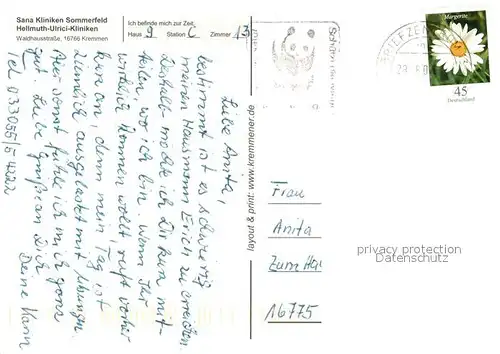 Sana Kliniken Sommerfeld
Hellmuth-Ulrici-Kliniken
Waldhausstraße, 16766 Kremmen
Ich befinde mich zur Zeit:
Haus 9 Station C Zimmer 13
Liebe Anita,
bestimmt ist es schwierig
meinen Hausmann Erich zu erreichen.
Deshalb möchte ich Dir kurz mit-
teilen, wo ich bin. Wenn Ihr
wirklich kommen wollt, ruft vorher
hier an, denn mein Tag ist
ziemlich ausgelastet mit Übungen.
Aber sonst fühle ich mich ganz
gut. Liebe Grüße an Dich
Deine Karin
Tel 033055/5 4222
layout & print: www.kremmener.de
Margerite
45
Deutschland
BRIEFZEN
Frau
Anita
Zum
16775
privacy protection
Datenschutz